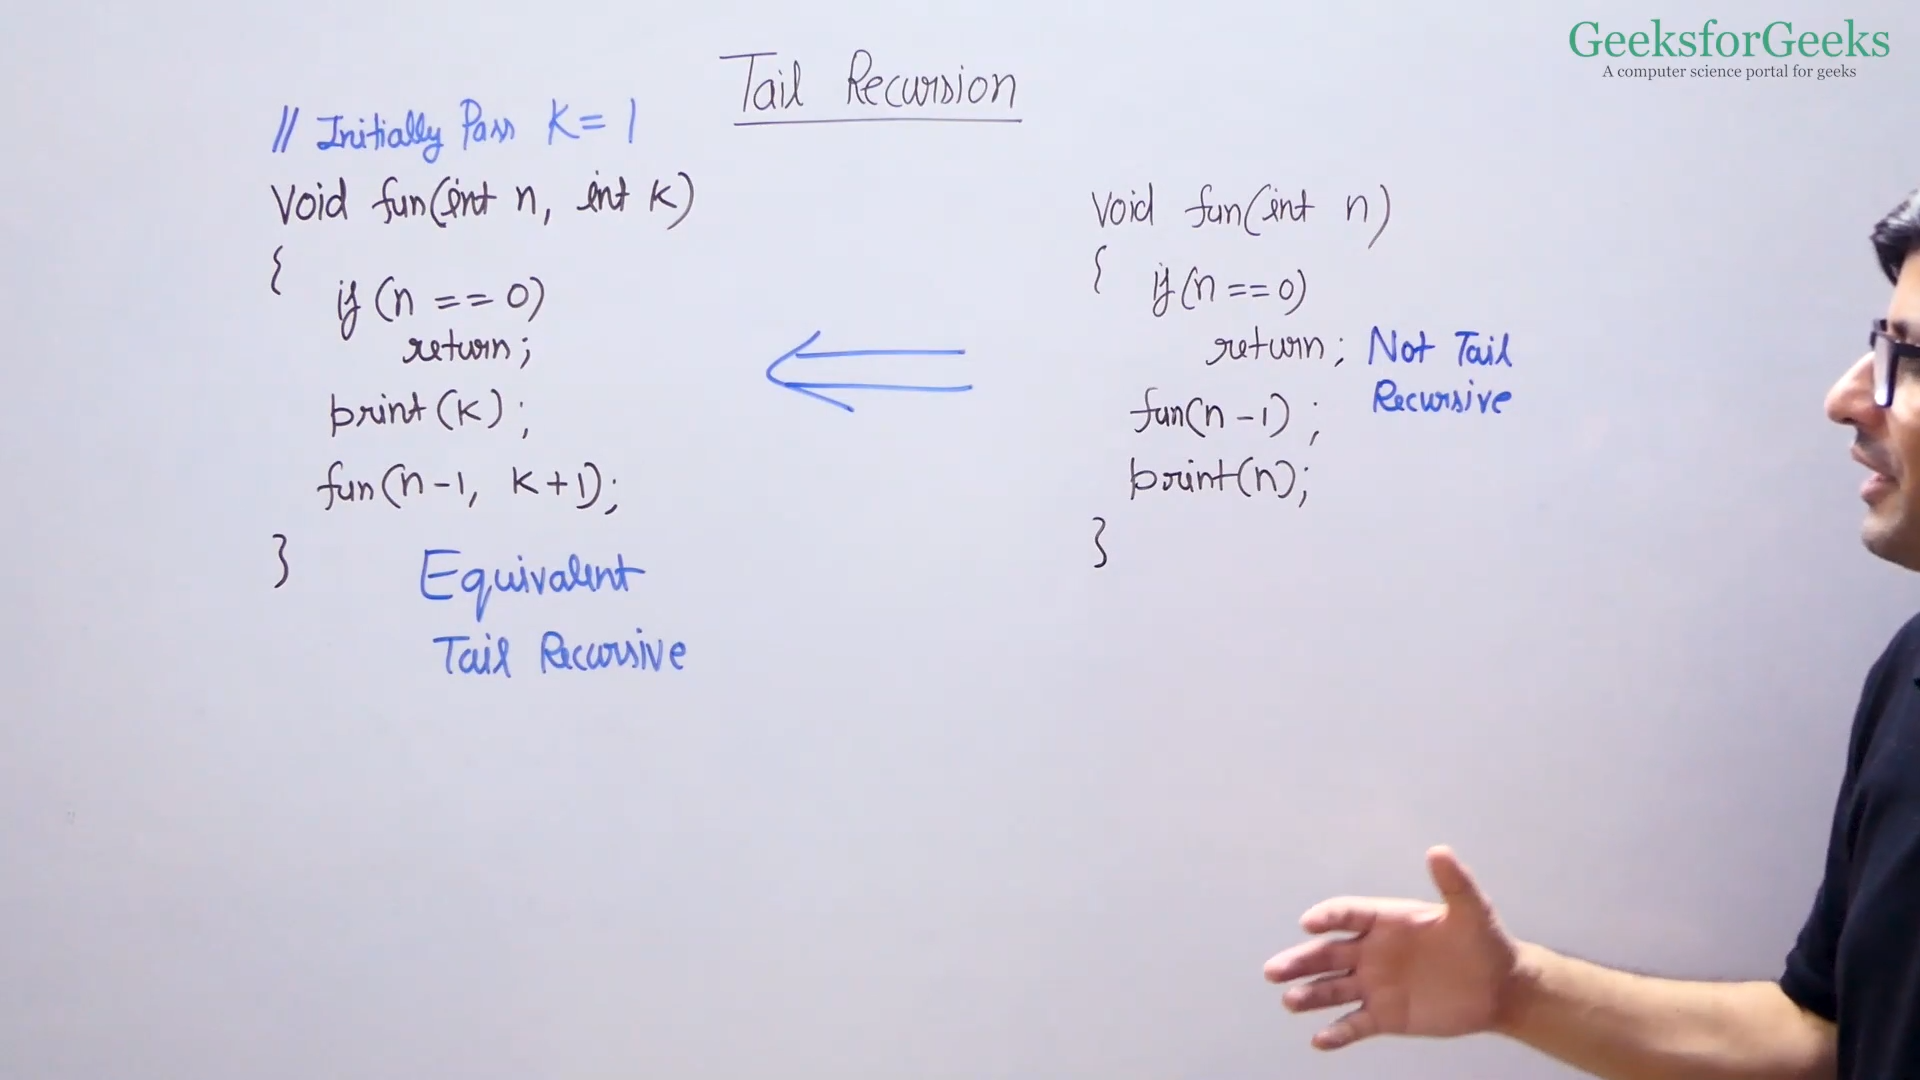 GeeksforGeeks
A computer science portal for geeks
Tail Recursion
// Initially Pass K = 1
Void fun(int n, int k)
{
if (n == 0)
return;
print(k);
fun(n-1, k+1);
}
Equivalent
Tail Recursive
Void fun(int n)
{
if (n == 0)
return; Not Tail
Recursive
fun(n-1);
print(n);
}